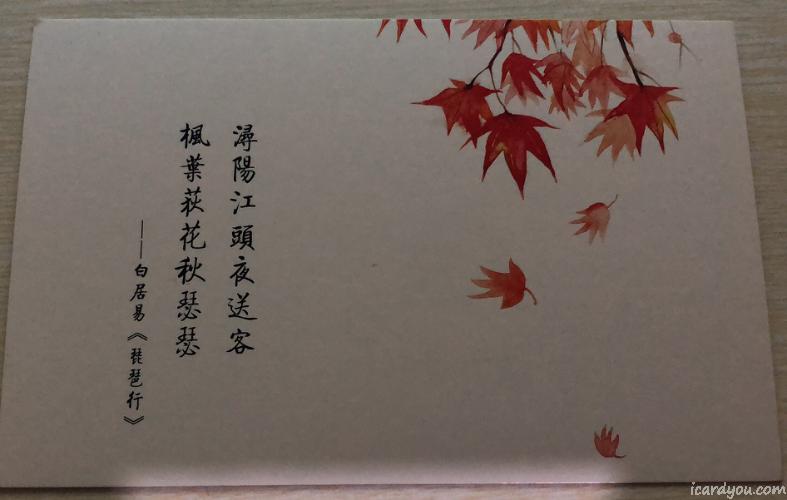 潯陽江頭夜送客
楓葉荻花秋瑟瑟
——白居易《琵琶行》
icardyou.com